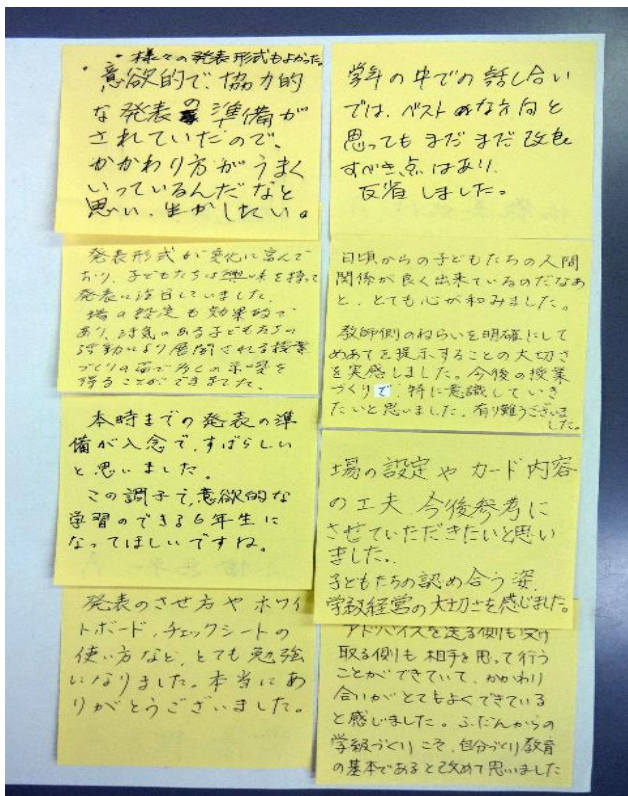 ・様々の発表形式もよかった。
・意欲的で、協力的
な発表の準備が
されていたので、
かかわり方がうまく
いっているんだなと
思い、生かしたい。
発表形式が変化に富んで
おり、子どもたちは興味を持って
発表に注目していました。
場の設定も効果的で
あり、活気のある子どもたちの
活動により展開される授業
づくりの面で多くの示唆を
得ることができました。
本時までの発表の準
備が入念で、すばらしい
と思いました。
この調子で、意欲的な
学習のできる6年生に
なってほしいですね。
発表のさせ方や ホワイ
トボード、チェックシートの
使い方など、とても勉強
になりました。本当にあ
りがとうございました。
学年の中での話し合い
では、ベストな方向と
思っても まだまだ改良
すべき点はあり、
反省しました。
日頃からの子どもたちの人間
関係が良く出来ているのだなあ
と、とても心が和みました。
教師側のねらいを明確にして
めあてを提示することの大切さ
を実感しました。今後の授業
づくりで 特に意識していき
たいと思いました。有り難うございま
した。
場の設定や カード内容
の工夫 今後参考に
させていただきたいと思い
ました。
子どもたちの認め合う姿、
学級経営の大切さを感じました。
アドバイスを送る側も受け
取る側も 相手を思って行う
ことができていて、かかわり
合いがとてもよくできている
と感じました。ふだんからの
学級づくりこそ、自分づくり教育
の基本であると改めて思いました